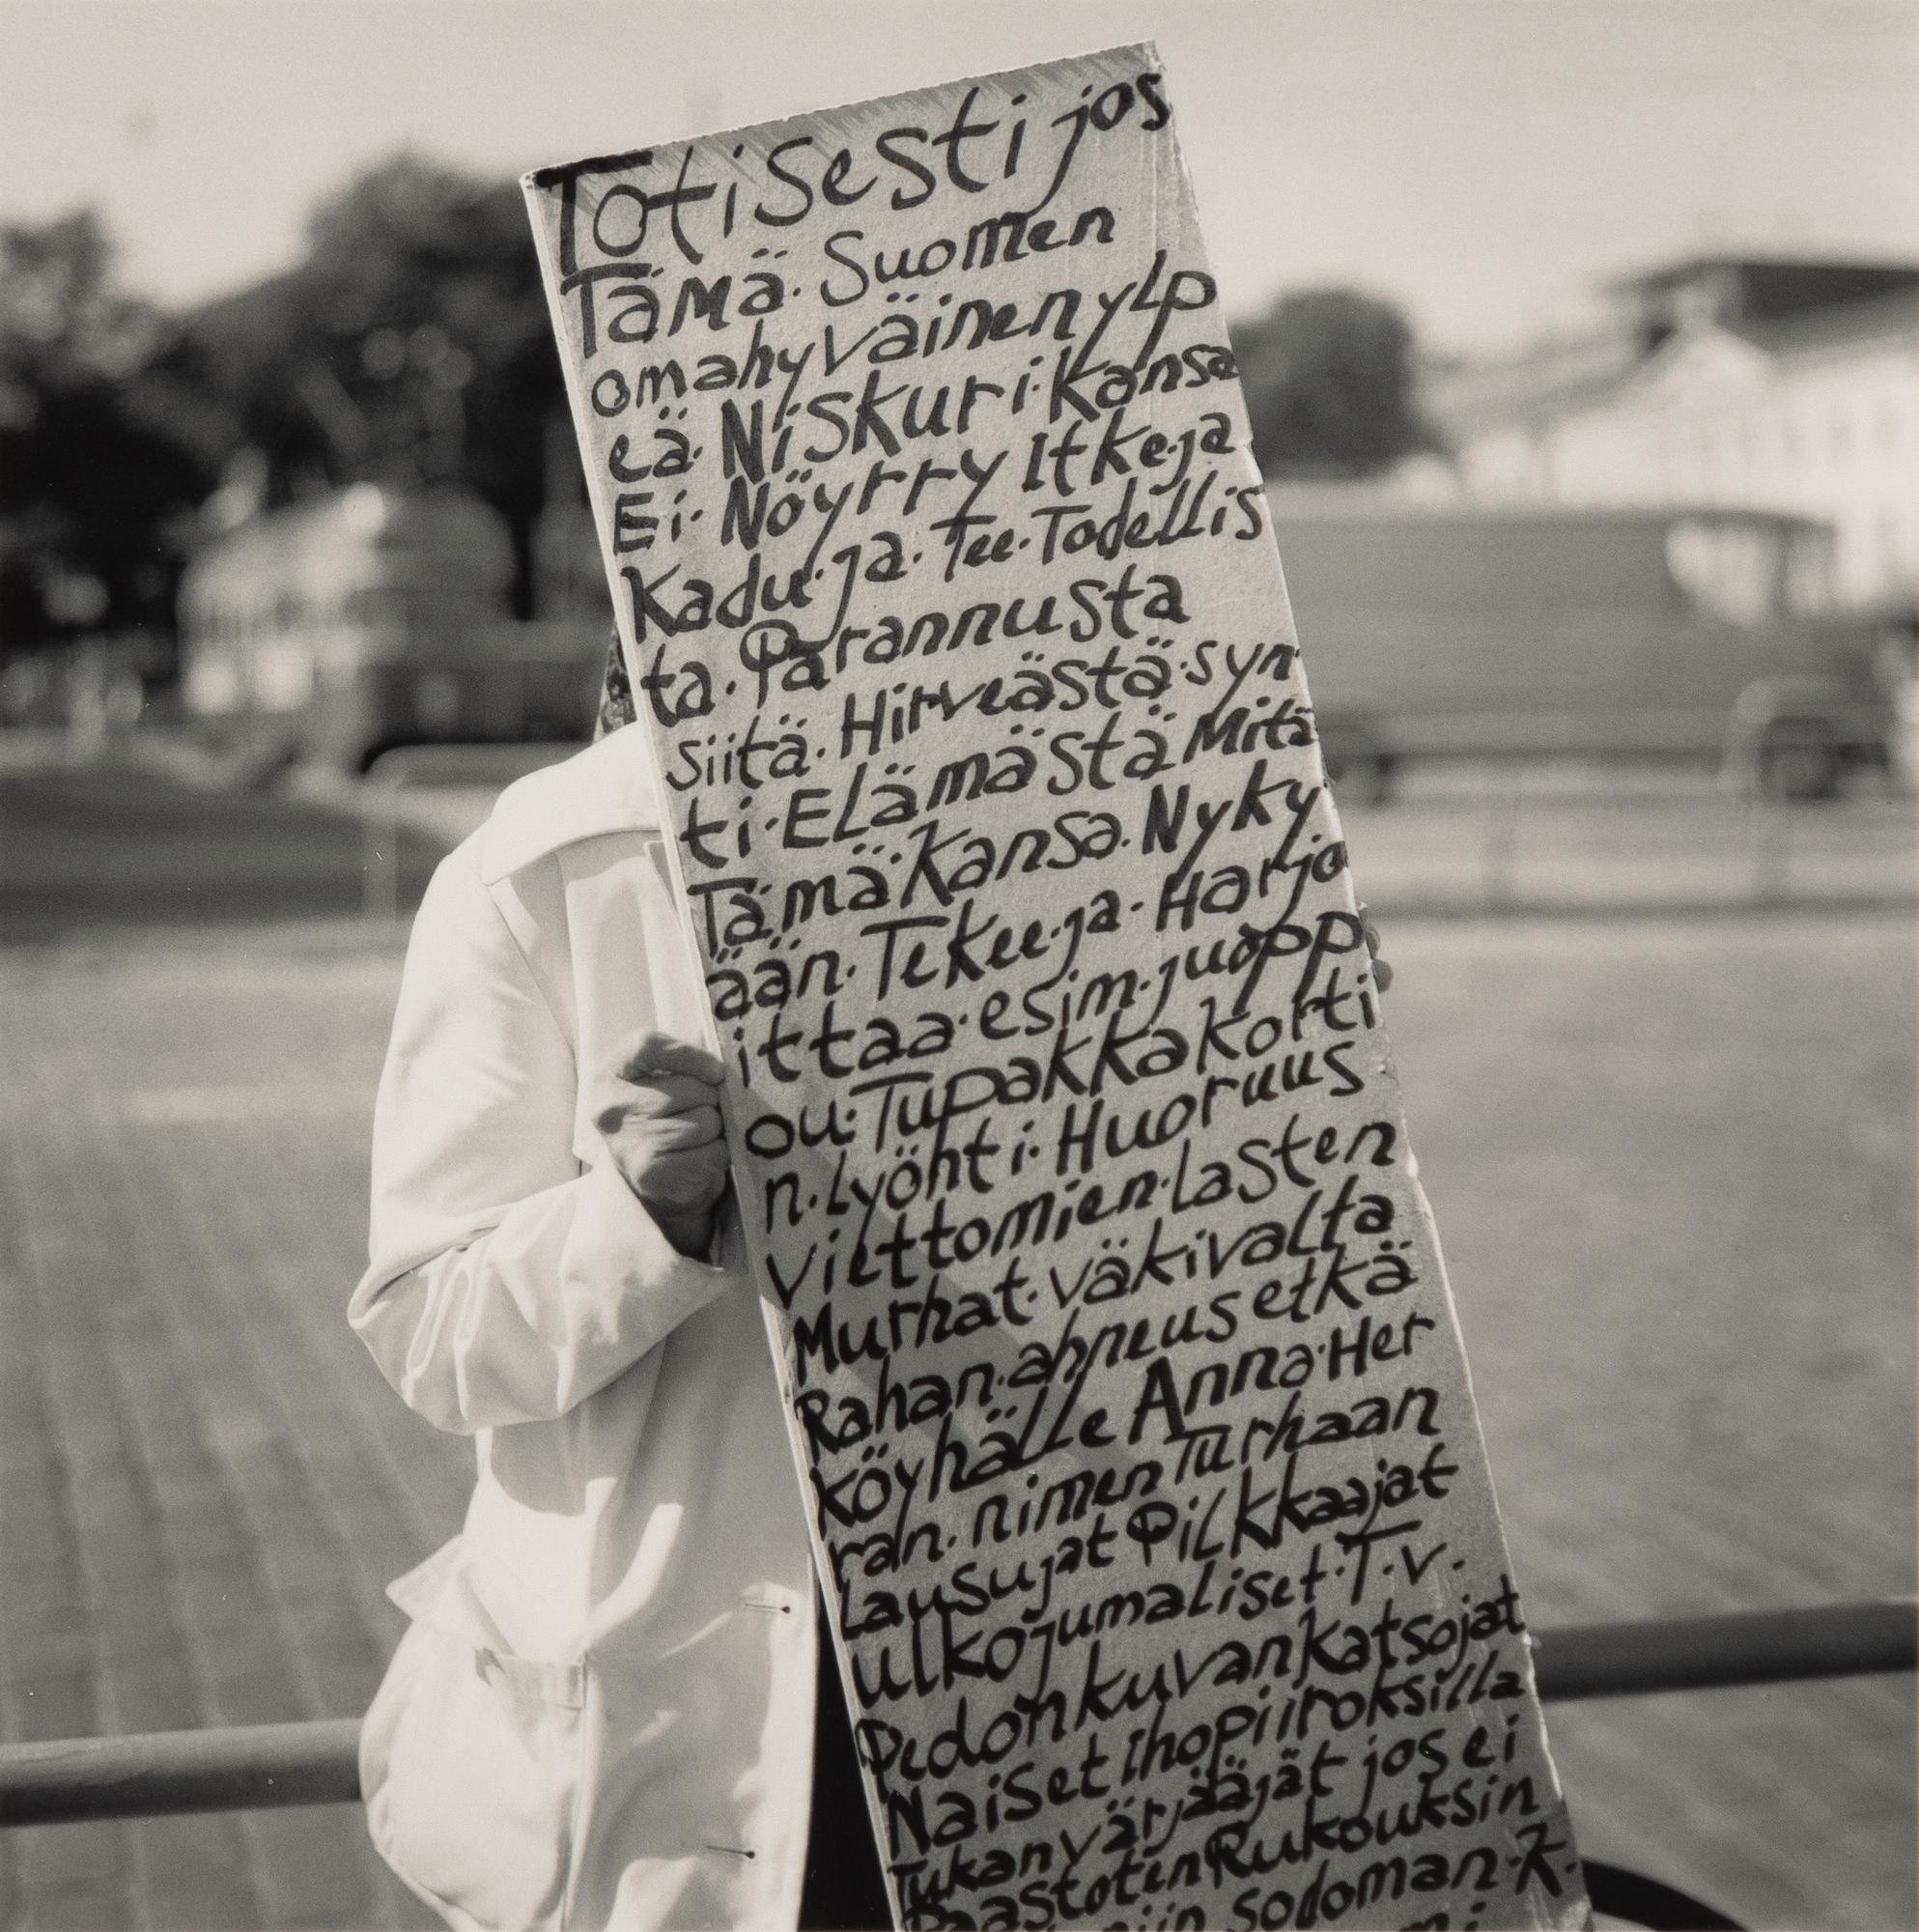 Totisesti jos
Tämä. Suomen
omahyväinen ylp
eä. Niskuri. Kansa
Ei. Nöyrry Itke.ja
Kadu. ja. Tee. Todellis
ta. Parannusta
siitä. Hirveästä. syn
ti. Elämästä Mitä
Tämä. Kansa. Nyky
ään. Tekee.ja. Harjo
ittaa. esim. juopp
ou. Tupakka korti
n. Lyöhti. Huoruus
viettomien. lasten
Murhat. väkivalta
Rahan. ahneus etkä
köyhälle Anna. Her
ran. nimen Turhaan
Lausujat Pilkkaajat
ulkojumaliset. T.v.
Pedon kuvan katsojat
Naiset Ihopiiroksilla
Tukan värjääjät jos ei
Paastoten Rukouksin
niin sodoman. K.